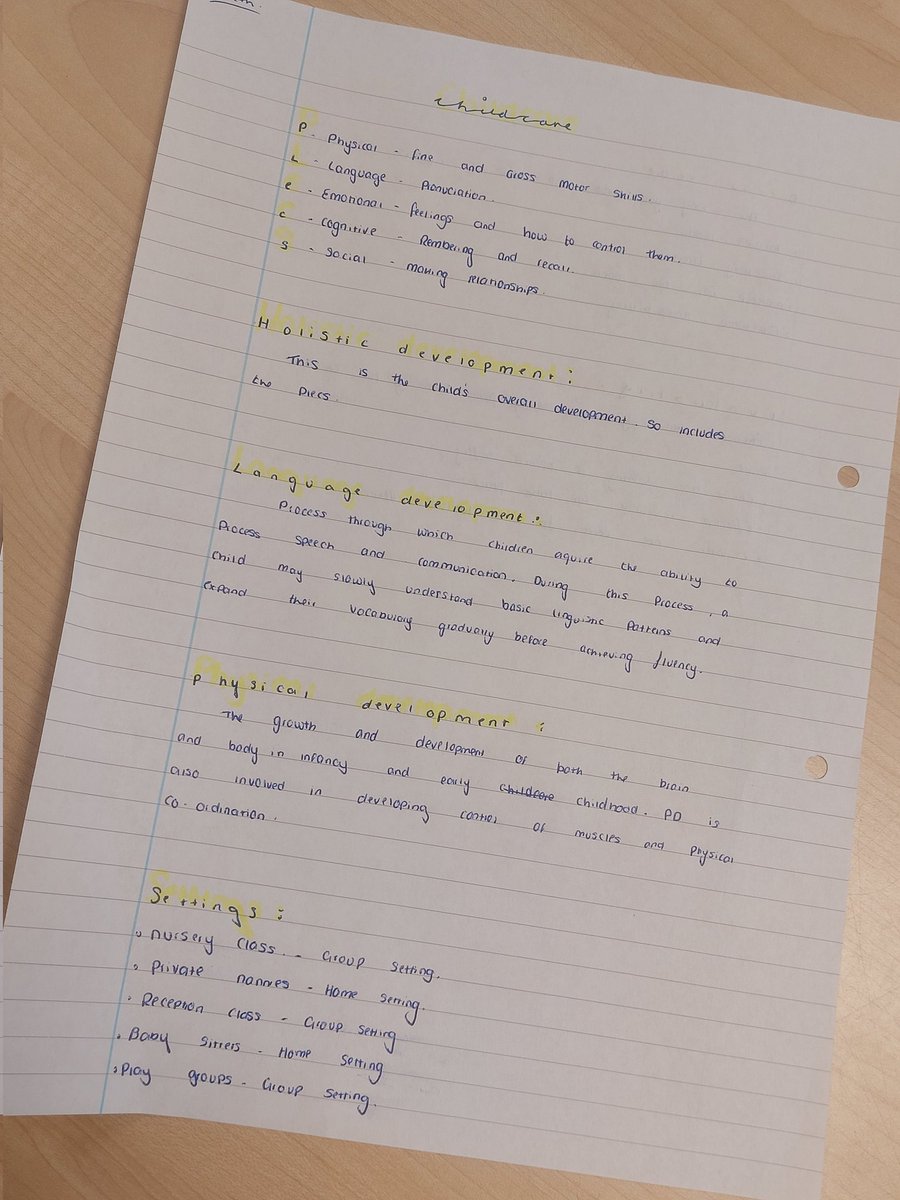 Childcare
P - Physical - fine and Gross motor skills.
L - Language - Pronuciation.
e - Emotional - feelings and how to control them.
c - cognitive - Rembering and recall.
S - Social - making relationships.
Holistic development:
This is the child's overall development. So includes
the Plecs.
Language development:
Process through which children aquire the ability to
Process speech and communication. During this Process, a
child may slowly understand basic linguistic Patterns and
expand their vocabulary gradually before achieving fluency.
Physical development:
The growth and development of both the brain
and body in infancy and early childcare childhood. PD is
also involved in developing control of muscles and Physical
co-ordination.
Settings:
• Nursery class - Group setting.
• Private nannies - Home setting.
• Reception class - Group setting
• Baby sitters - Home setting
• Play groups - Group setting.